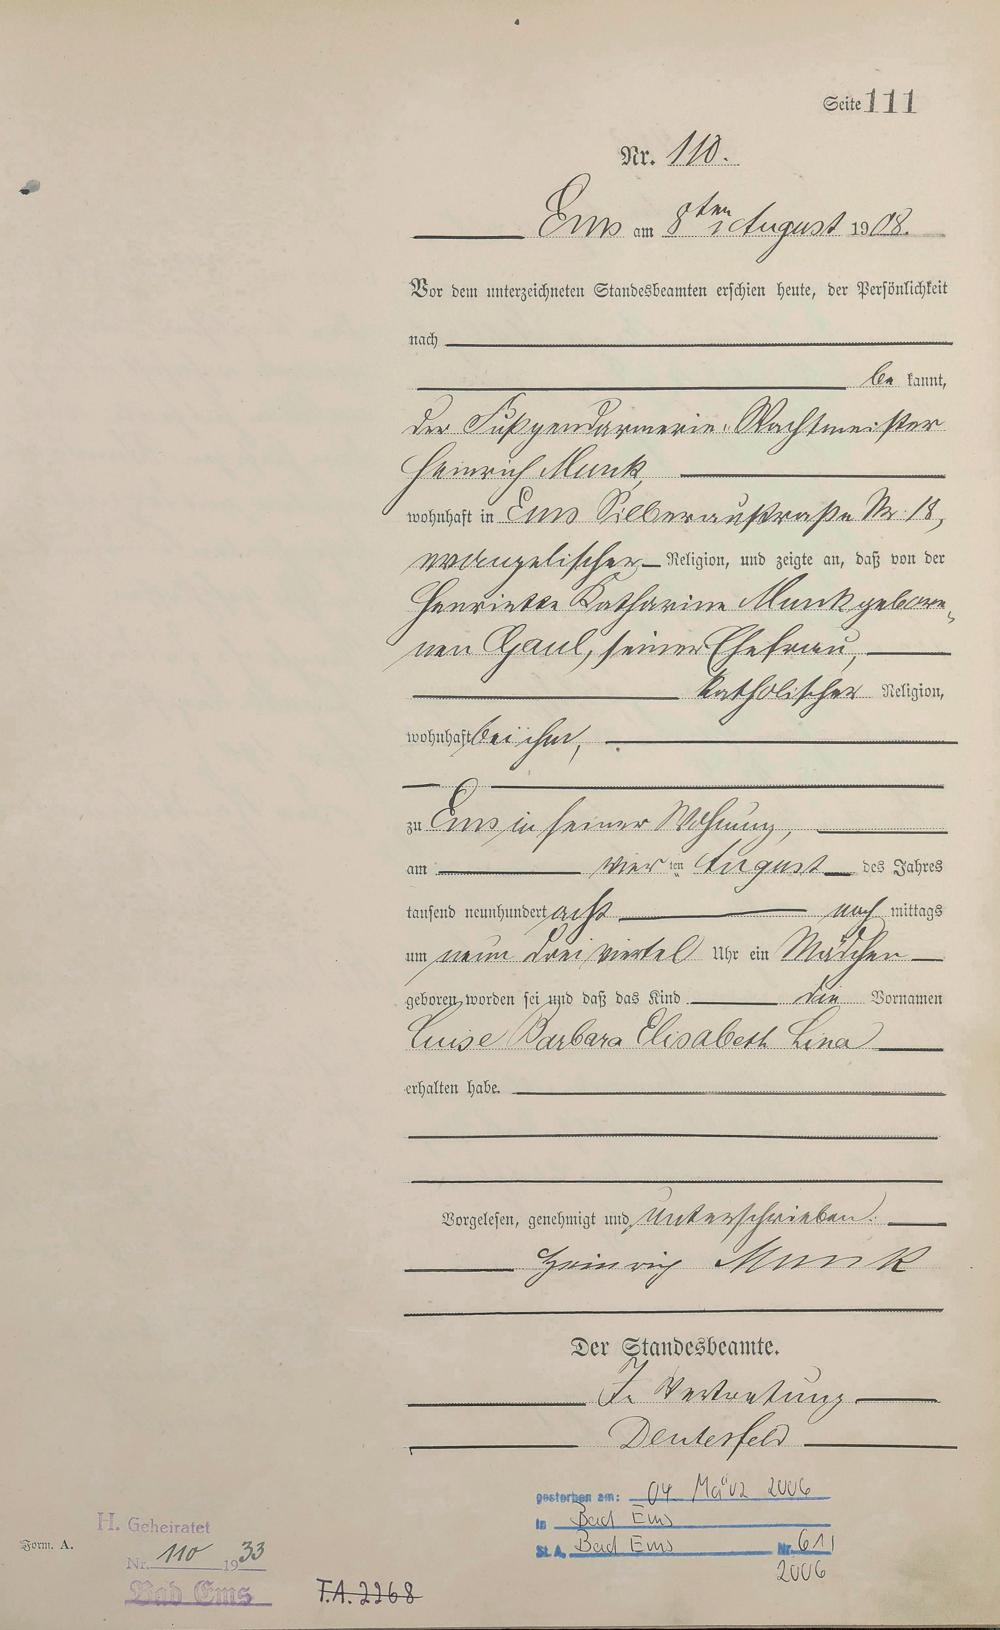 Seite 111
Nr. 110.
Ems am 8ten August 1908.
Vor dem unterzeichneten Standesbeamten erschien heute, der Persönlichkeit
nach
be kannt,
der Fußgendarmerie-Wachtmeister
Heinrich Munk,
wohnhaft in Ems Silberaustraße Nr. 18,
evangelischer Religion, und zeigte an, daß von der
Henriette Katharine Munk gebore-
nen Gaul, seiner Ehefrau,
katholischer Religion,
wohnhaft bei ihm,
zu Ems in seiner Wohnung,
am vier ten August des Jahres
tausend neunhundert acht nach mittags
um neun drei viertel Uhr ein Mädchen
geboren worden sei und daß das Kind die Vornamen
Luise Barbara Elisabeth Lina
erhalten habe.
Vorgelesen, genehmigt und unterschrieben.
Heinrich Munk
Der Standesbeamte.
In Vertretung
Deutesfeld
gestorben am: 04 März 2006
in Bad Ems
St. A. Bad Ems Nr. 611
2006
H. Geheiratet
Nr. 110 1933
Bad Ems
Form. A.
T.A. 2268